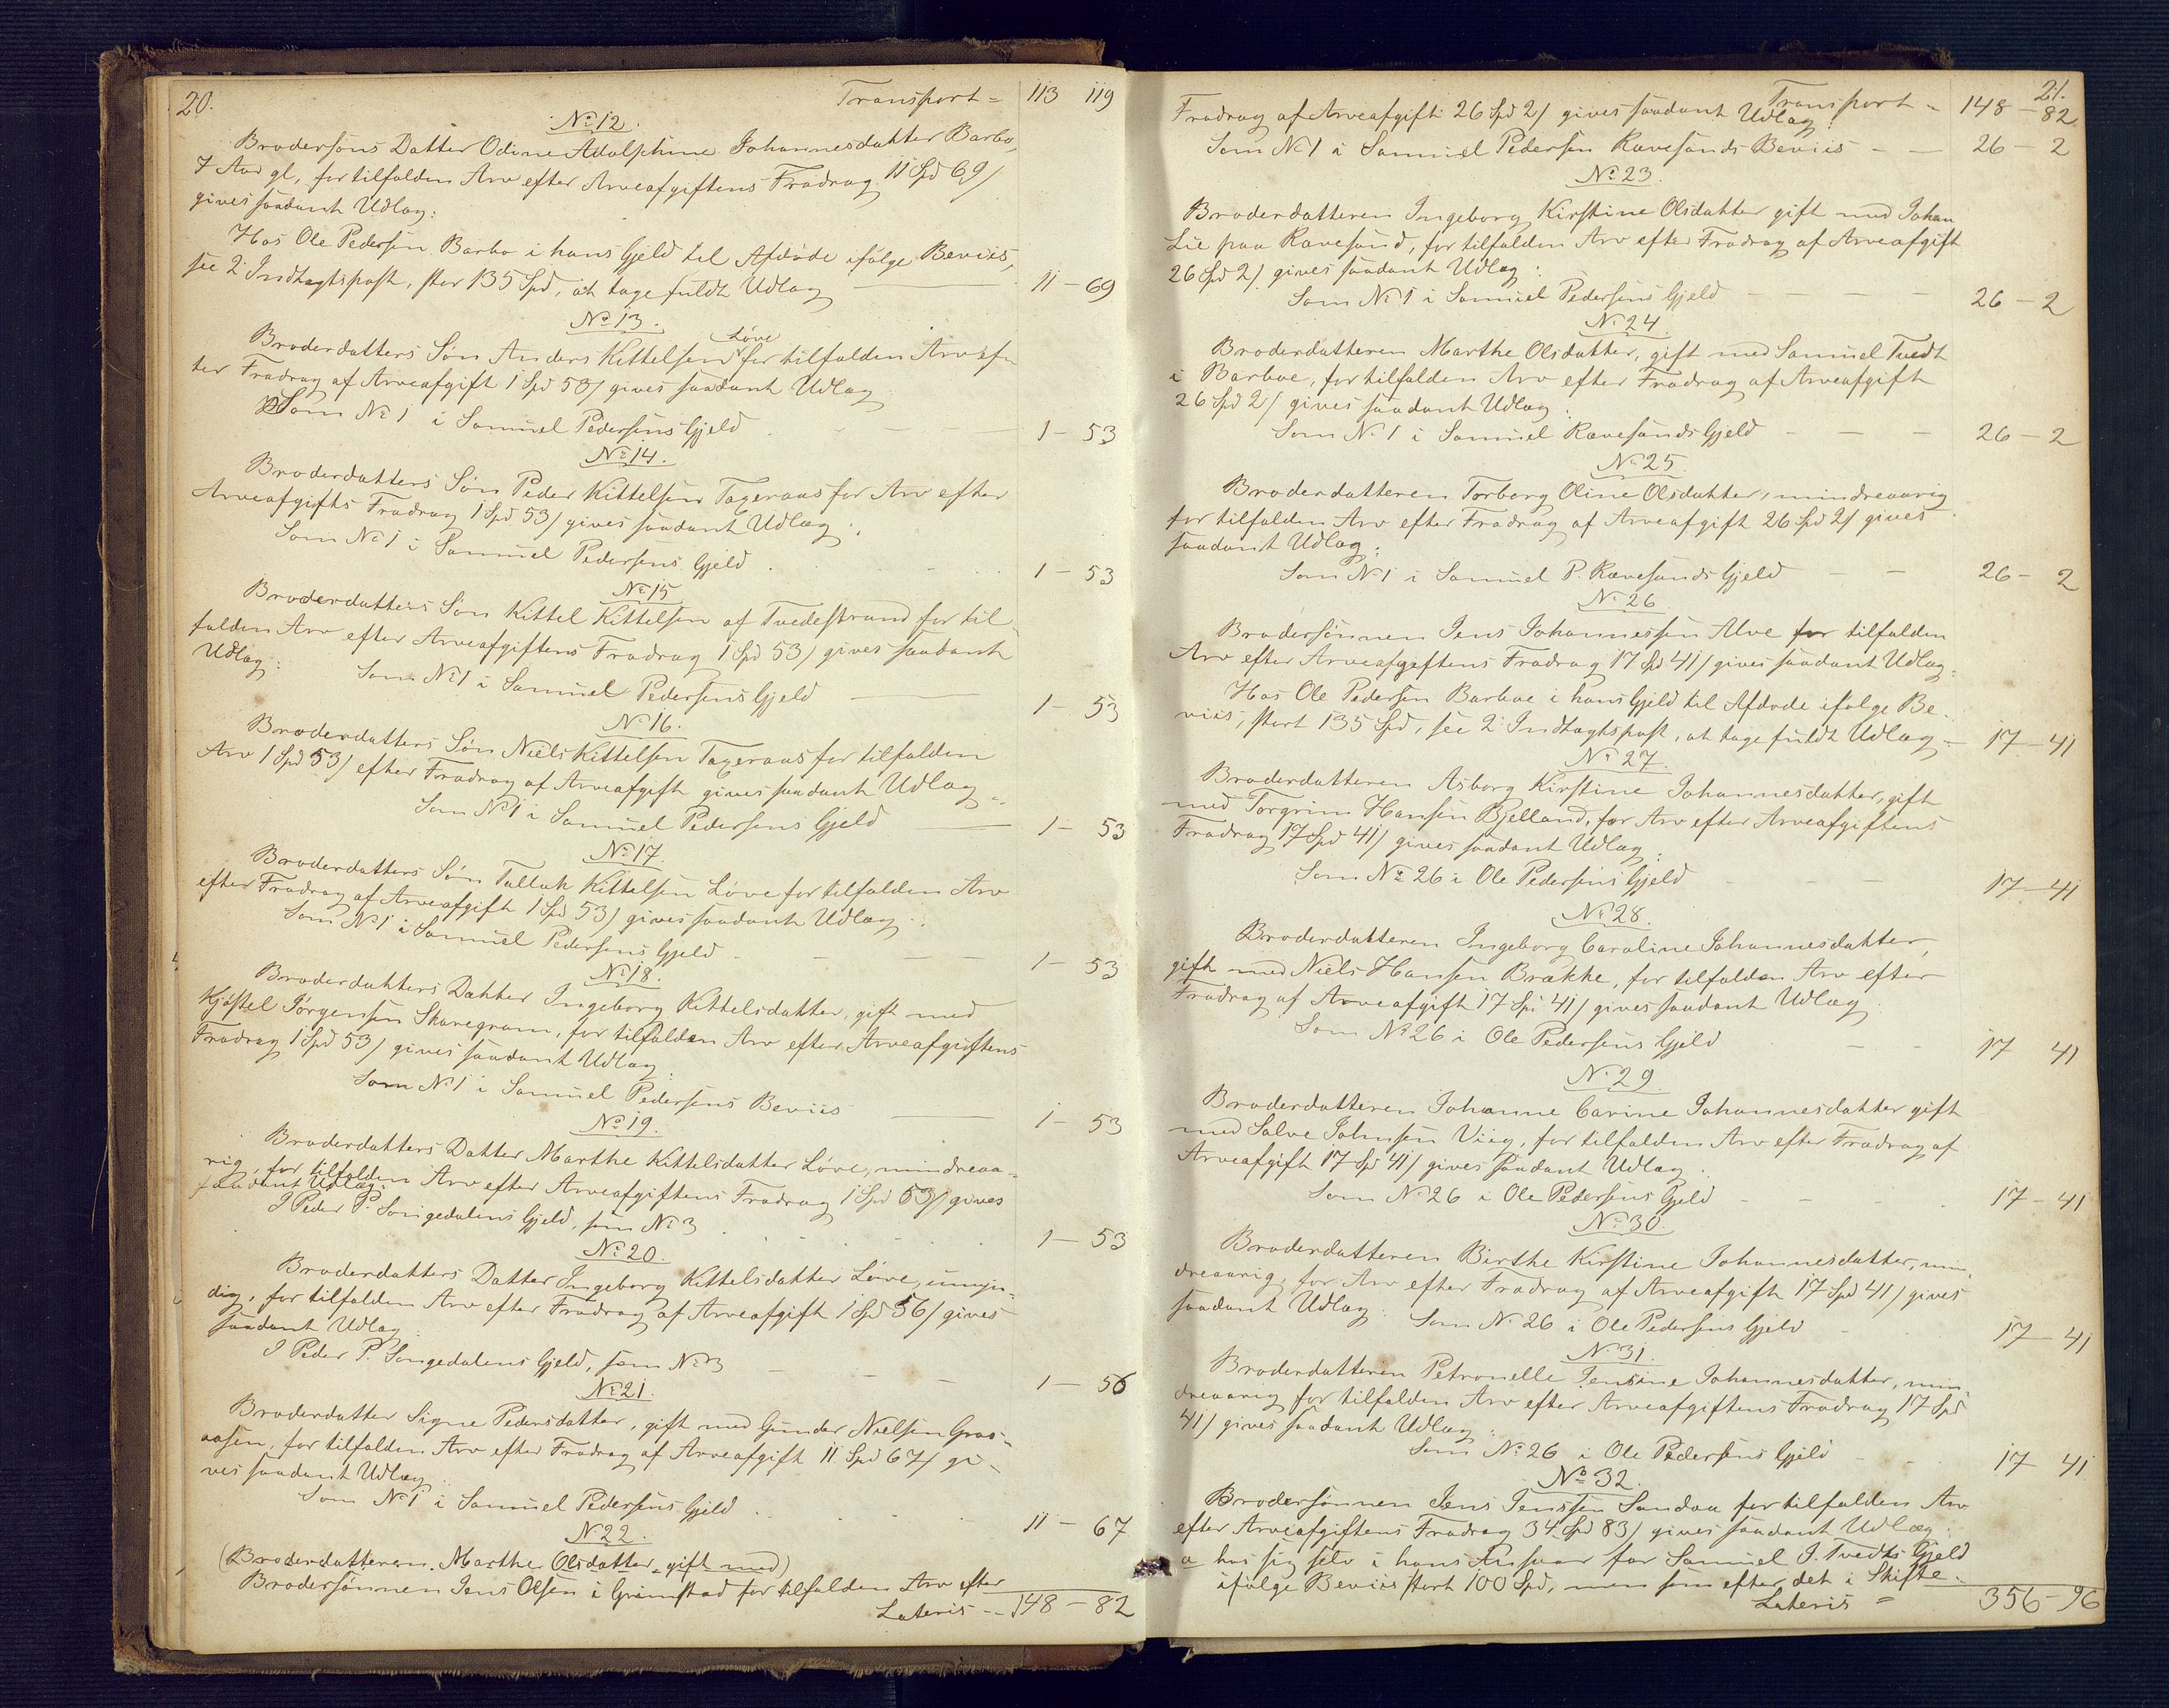 20.
Transport = 113 119
No 12.
Brodersøns Datter Odine Adolphine Johannesdatter Barbo,
7 Aar gl, for tilfalden Arv efter Arveafgiftens Fradrag 11 Spd 69/
gives saadant Udlæg:
Hos Ole Pedersen Barbo i hans Gjeld til Afdøde ifølge Beviis,
see 2' Indtægtspost, stor 135 Spd, at tage fuldt Udlæg — 11 - 69
No 13.
Løve
Broderdatters Søn Anders Kittelsen for tilfalden Arv ef-
ter Fradrag af Arveafgift 1 Spd 53/ gives saadant Udlæg
Som No 1 i Samuel Pedersens Gjeld 1 - 53
No 14.
Broderdatters Søn Peder Kittelsen Tageraas for Arv efter
Arveafgifts Fradrag 1 Spd 53/ gives saadant Udlæg:
Som No 1 i Samuel Pedersens Gjeld 1 - 53
No 15
Broderdatters Søn Kittel Kittelsen af Tvedestrand for til-
falden Arv efter Arveafgiftens Fradrag 1 Spd 53/ gives saadant
Udlæg:
Som No 1 i Samuel Pedersens Gjeld — 1 - 53
No 16.
Broderdatters Søn Niels Kittelsen Tageraas for tilfalden
Arv 1 Spd 53/ efter Fradrag af Arveafgift gives saadant Udlæg:
Som No 1 i Samuel Pedersens Gjeld — 1 - 53
No 17.
Broderdatters Søn Tallak Kittelsen Løve for tilfalden Arv
efter Fradrag af Arveafgift 1 Spd 53/ gives saadant Udlæg:
Som No 1 i Samuel Pedersens Gjeld - 1 - 53
No 18.
Broderdatters Datter Ingeborg Kittelsdatter, gift med
Kjøstel Jørgensen Skaregrøm, for tilfalden Arv efter Arveafgiftens
Fradrag 1 Spd 53/ gives saadant Udlæg:
Som No 1 i Samuel Pedersens Beviis — 1 - 53
No 19.
Broderdatters Datter Marthe Kittelsdatter Løve, mindreaa-
rig, for tilfalden Arv efter Arveafgiftens Fradrag 1 Spd 53/ gives
saadant Udlæg:
I Peder P. Songedalens Gjeld, som No 3 1 - 53
No 20.
Broderdatters Datter Ingeborg Kittelsdatter Løve, umyn-
dig, for tilfalden Arv efter Fradrag af Arveafgift 1 Spd 56/ gives
saadant Udlæg:
I Peder P. Songedalens Gjeld, som No 3 - 1 - 56
No 21.
Broderdatter Signe Pedersdatter, gift med Gunder Nielsen Graa-
aasen, for tilfalden Arv efter Fradrag af Arveafgift 11 Spd 67/ gi-
ves saadant Udlæg
Som No 1 i Samuel Pedersens Gjeld 11 - 67
N 22.
(Broderdatteren Marthe Olsdatter gift med)
Brodersønnen Jens Olsen i Grimstad for tilfalden Arv efter
Lateris -- 148 - 82
21.
Transport - 148 - 82
Fradrag af Arveafgift 26 Spd 2/ gives saadant Udlæg:
Som No 1 i Samuel Pedersen Ravesands Beviis - - 26 - 2
No 23.
Broderdatteren Ingeborg Kirstine Olsdatter gift med Johan
Lie paa Ravesand, for tilfalden Arv efter Fradrag af Arveafgift
26 Spd 2/ gives saadant Udlæg:
Som No 1 i Samuel Pedersens Gjeld - 26 - 2
No 24.
Broderdatteren Marthe Olsdatter, gift med Samuel Tvedt
i Barboe, for tilfalden Arv efter Fradrag af Arveafgift
26 Spd 2/ gives saadant Udlæg:
Som No 1 i Samuel Ravesands Gjeld - 26 - 2
No 25.
Broderdatteren Torborg Oline Olsdatter, mindreaarig
for tilfalden Arv efter Fradrag af Arveafgift 26 Spd 2/ gives
saadant Udlæg:
Som No 1 i Samuel P. Ravesands Gjeld - 26 - 2
No 26
Brodersønnen Jens Johannessen Alve for tilfalden
Arv efter Arveafgiftens Fradrag 17 Spd 41/ gives saadant Udlæg:
Hos Ole Pedersen Barboe i hans Gjeld til Afdøde ifølge Be-
viis, stort 135 Spd, see 2' Indtægtspost, at tage fuldt Udlæg - 17 - 41
No 27.
Broderdatteren Asborg Kirstine Johannesdatter, gift
med Torgrim Hansen Bjelland, for Arv efter Arveafgiftens
Fradrag 17 Spd 41/ gives saadant Udlæg:
Som No 26 i Ole Pedersens Gjeld 17 - 41
No 28.
Broderdatteren Ingeborg Caroline Johannesdatter,
gift med Niels Hansen Brække, for tilfalden Arv efter
Fradrag af Arveafgift 17 Spd 41/ gives saadant Udlæg
Som No 26 i Ole Pedersens Gjeld 17 41
No 29.
Broderdatteren Johanne Carine Johannesdatter gift
med Salve Johnsen Viig, for tilfalden Arv efter Fradrag af
Arveafgift 17 Spd 41/ gives saadant Udlæg:
Som No 26 i Ole Pedersens Gjeld - 17 - 41
No 30.
Broderdatteren Birthe Kirstine Johannesdatter, min-
dreaarig, for Arv efter Fradrag af Arveafgift 17 Spd 41/ gives
saadant Udlæg: Som No 26 i Ole Pedersens Gjeld 17 - 41
No 31.
Broderdatteren Petronelle Jensine Johannesdatter, min-
dreaarig for tilfalden Arv efter Arveafgiftens Fradrag 17 Spd
41/ gives saadant Udlæg:
Som No 26 i Ole Pedersens Gjeld 17 41
No 32.
Brodersønnen Jens Jenssen Sandaa for tilfalden Arv
efter Arveafgiftens Fradrag 34 Spd 83/ gives saadant Udlæg:
a hos sig selv i hans Ansvar for Samuel J. Tvedts Gjeld
ifølge Beviis stort 100 Spd, men som efter det i Skifte-
Lateris = 356 - 96